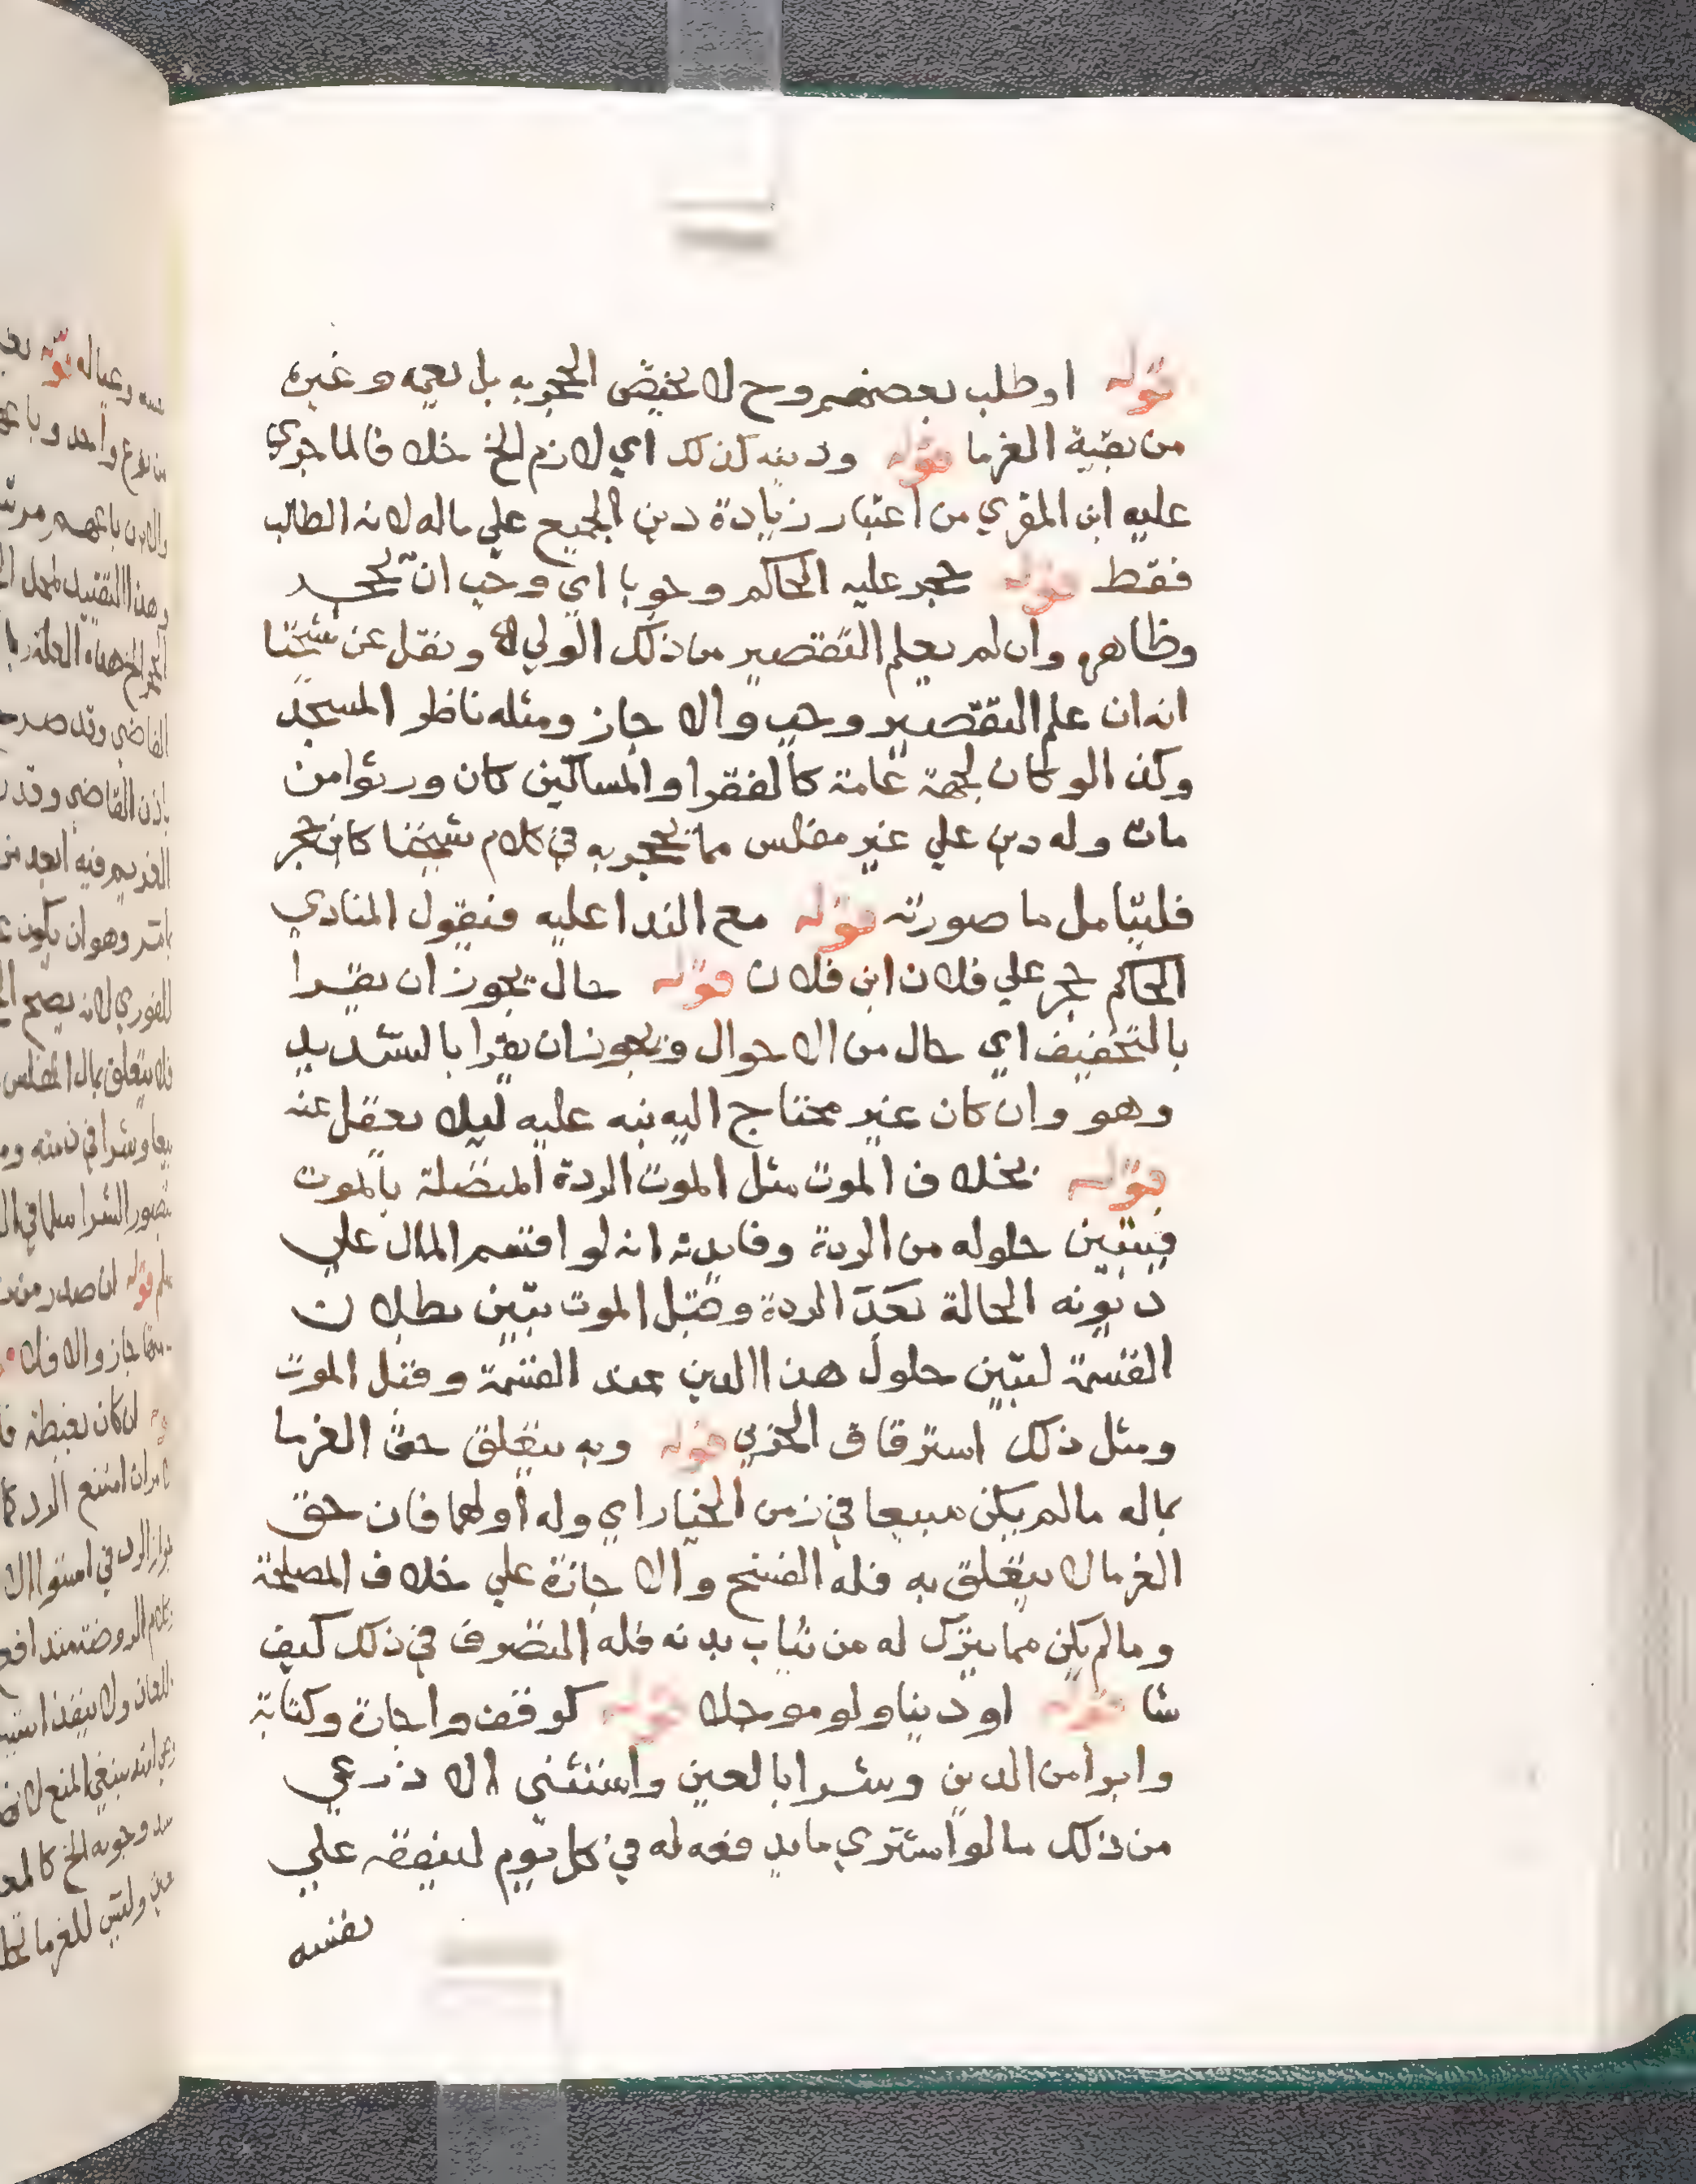 قوله او طلب بعضهم وح لا يختص الحجر به بل يعمه وغيره
من بقية الغرما قوله ودينه كذلك اي لازم الخ خلافا لما جري
عليه ابن المقري من اعتبار زيادة دين الجميع علي ماله لانه الطالب
فقط قوله حجر عليه الحاكم وجوبا اي وجب ان
وظاهره وان لم يعلم التقصير من ذلك الولي ونقل عن شيخنا
انه ان علم التقصير وجب والا جاز ومثله ناظر المسجد
وكذا لو كان لجهة عامة كالفقرا والمساكين كان ورثوا من
مات وله دين علي غير مفلس مما يحجر به في كلام شيخنا كابن حجر
فليتامل ما صورته قوله مع الندا عليه فيقول المنادي
الحاكم حجر علي فلان ابن فلان قوله حال يجوز ان يقرا
بالتخفيف اي حال من الاحوال ويجوز ان يقرا بالتشديد
وهو وان كان غير محتاج اليه نبه عليه ليلا يعفل عنه
قوله بخلاف الموت مثل الموت الردة المتصلة بالموت
فيتبين حلوله من الردة وفايدته انه لو اقتسم المال علي
ديونه الحالة بعد الردة وقبل الموت تبين بطلان
القسمة لتبين حلول هذا الدين عند القسمة وقبل الموت
ومثل ذلك استرقاق الحربي قوله وبه يتعلق حق الغرما
بماله مالم يكن مبيعا في زمن الخيار اي وله او لهما فان حق
الغرما لا يتعلق به فله الفسخ والاجازة علي خلاف المصلحة
ومالم يكن مما يترك له من ثياب بدنه فله التصرف في ذلك كيف
شا قوله او دينا ولو موجلا قوله كوقف واجارة وكتابة
وابرا من الدين وشرا بالعين واستثني الاذرعي
من ذلك مالو اشتري مايد فعه له في كل يوم لنفقه علي
نفسه